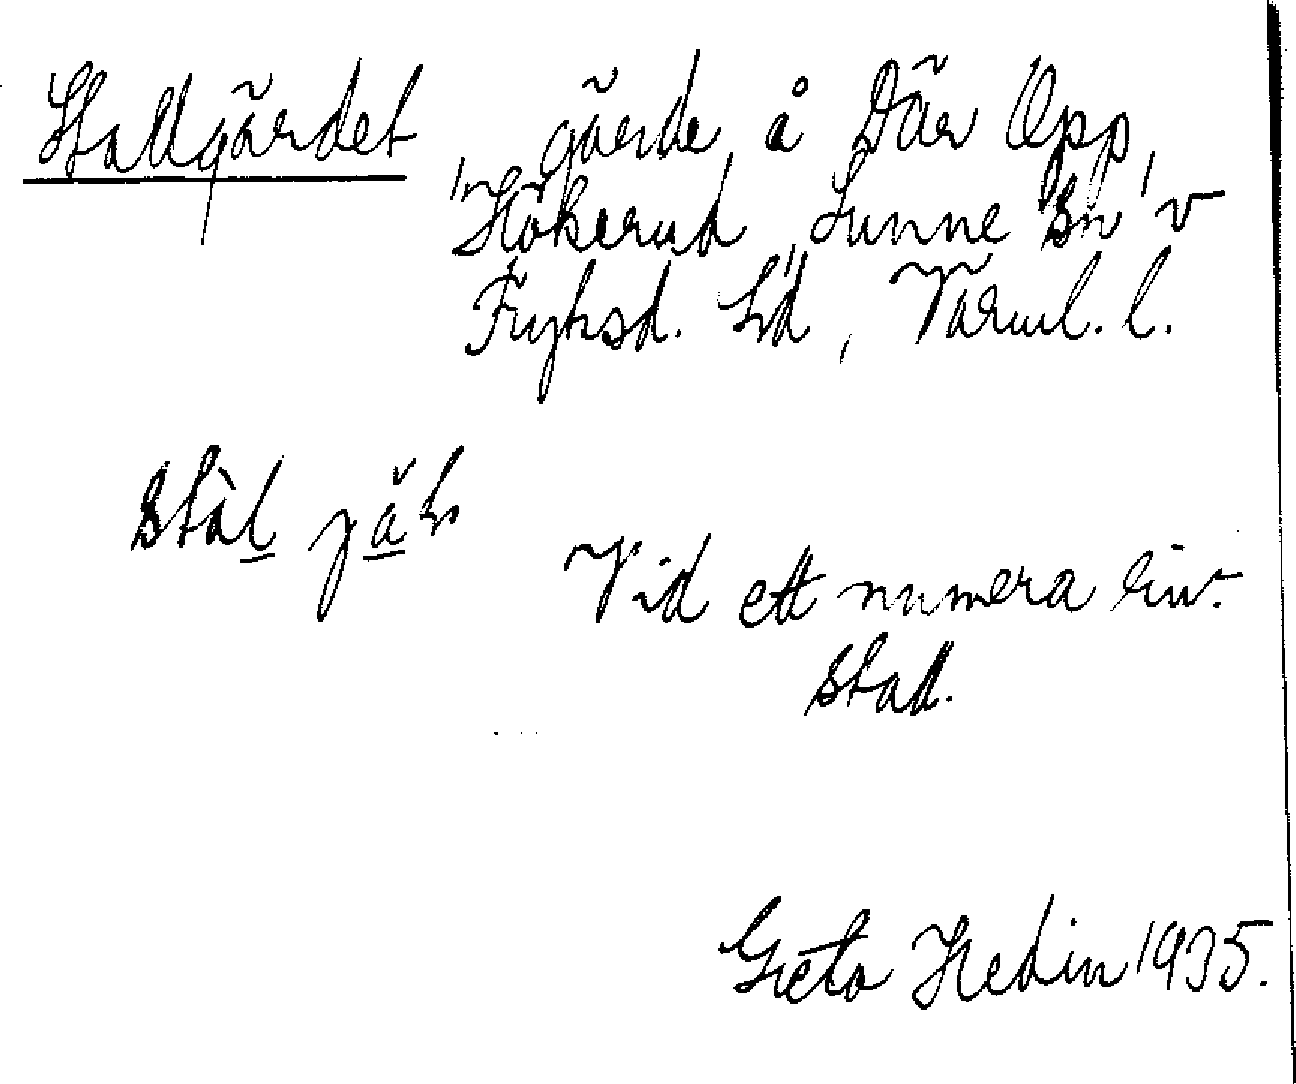 Stallgärdet, gärde å Där Opp,
Hökerud, Sunne sn, v
Fryksd. hd, Värml. l.
stàl jäḷe
Vid ett numera riv.
stall.
Greta Hedin 1935.